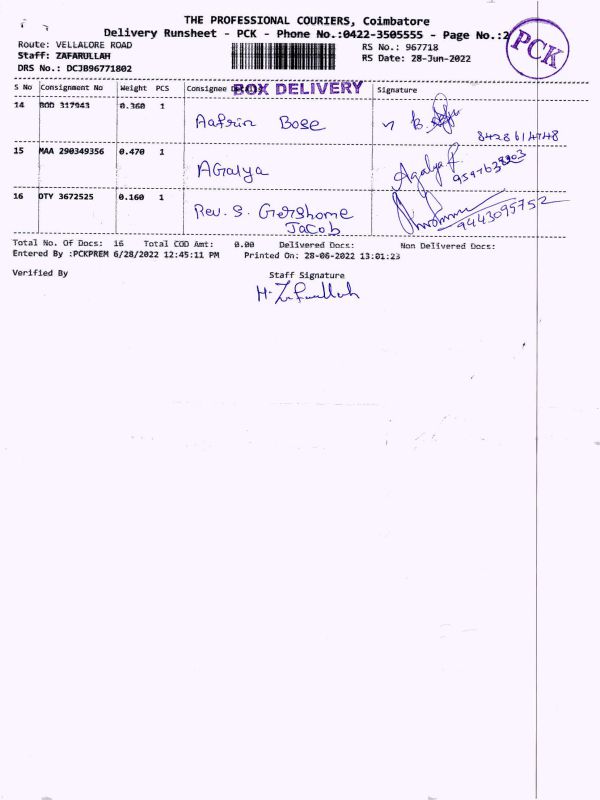 THE PROFESSIONAL COURIERS, Coimbatore
Delivery Runsheet - PCK - Phone No.:0422-3505555 - Page No.:2
PCK
Route: VELLALORE ROAD
RS No.: 967718
Staff: ZAFARULLAH
RS Date: 28-Jun-2022
DRS No.: DCJB96771802
S No Consignment No Weight PCS Consignee Signature
BOX DELIVERY
14 BOD 317943 0.360 1 Aafrin Bose
8428614748
15 MAA 290349356 0.470 1 AGalya Agalya P.
16 DTY 3672525 0.160 1 Rev. S. Gershome
Jacob
9443095752
Total No. Of Docs: 16 Total COD Amt: 0.00 Delivered Docs: Non Delivered Docs:
Entered By :PCKPREM 6/28/2022 12:45:11 PM Printed On: 28-06-2022 13:01:23
Verified By Staff Signature
H. Zafarullah